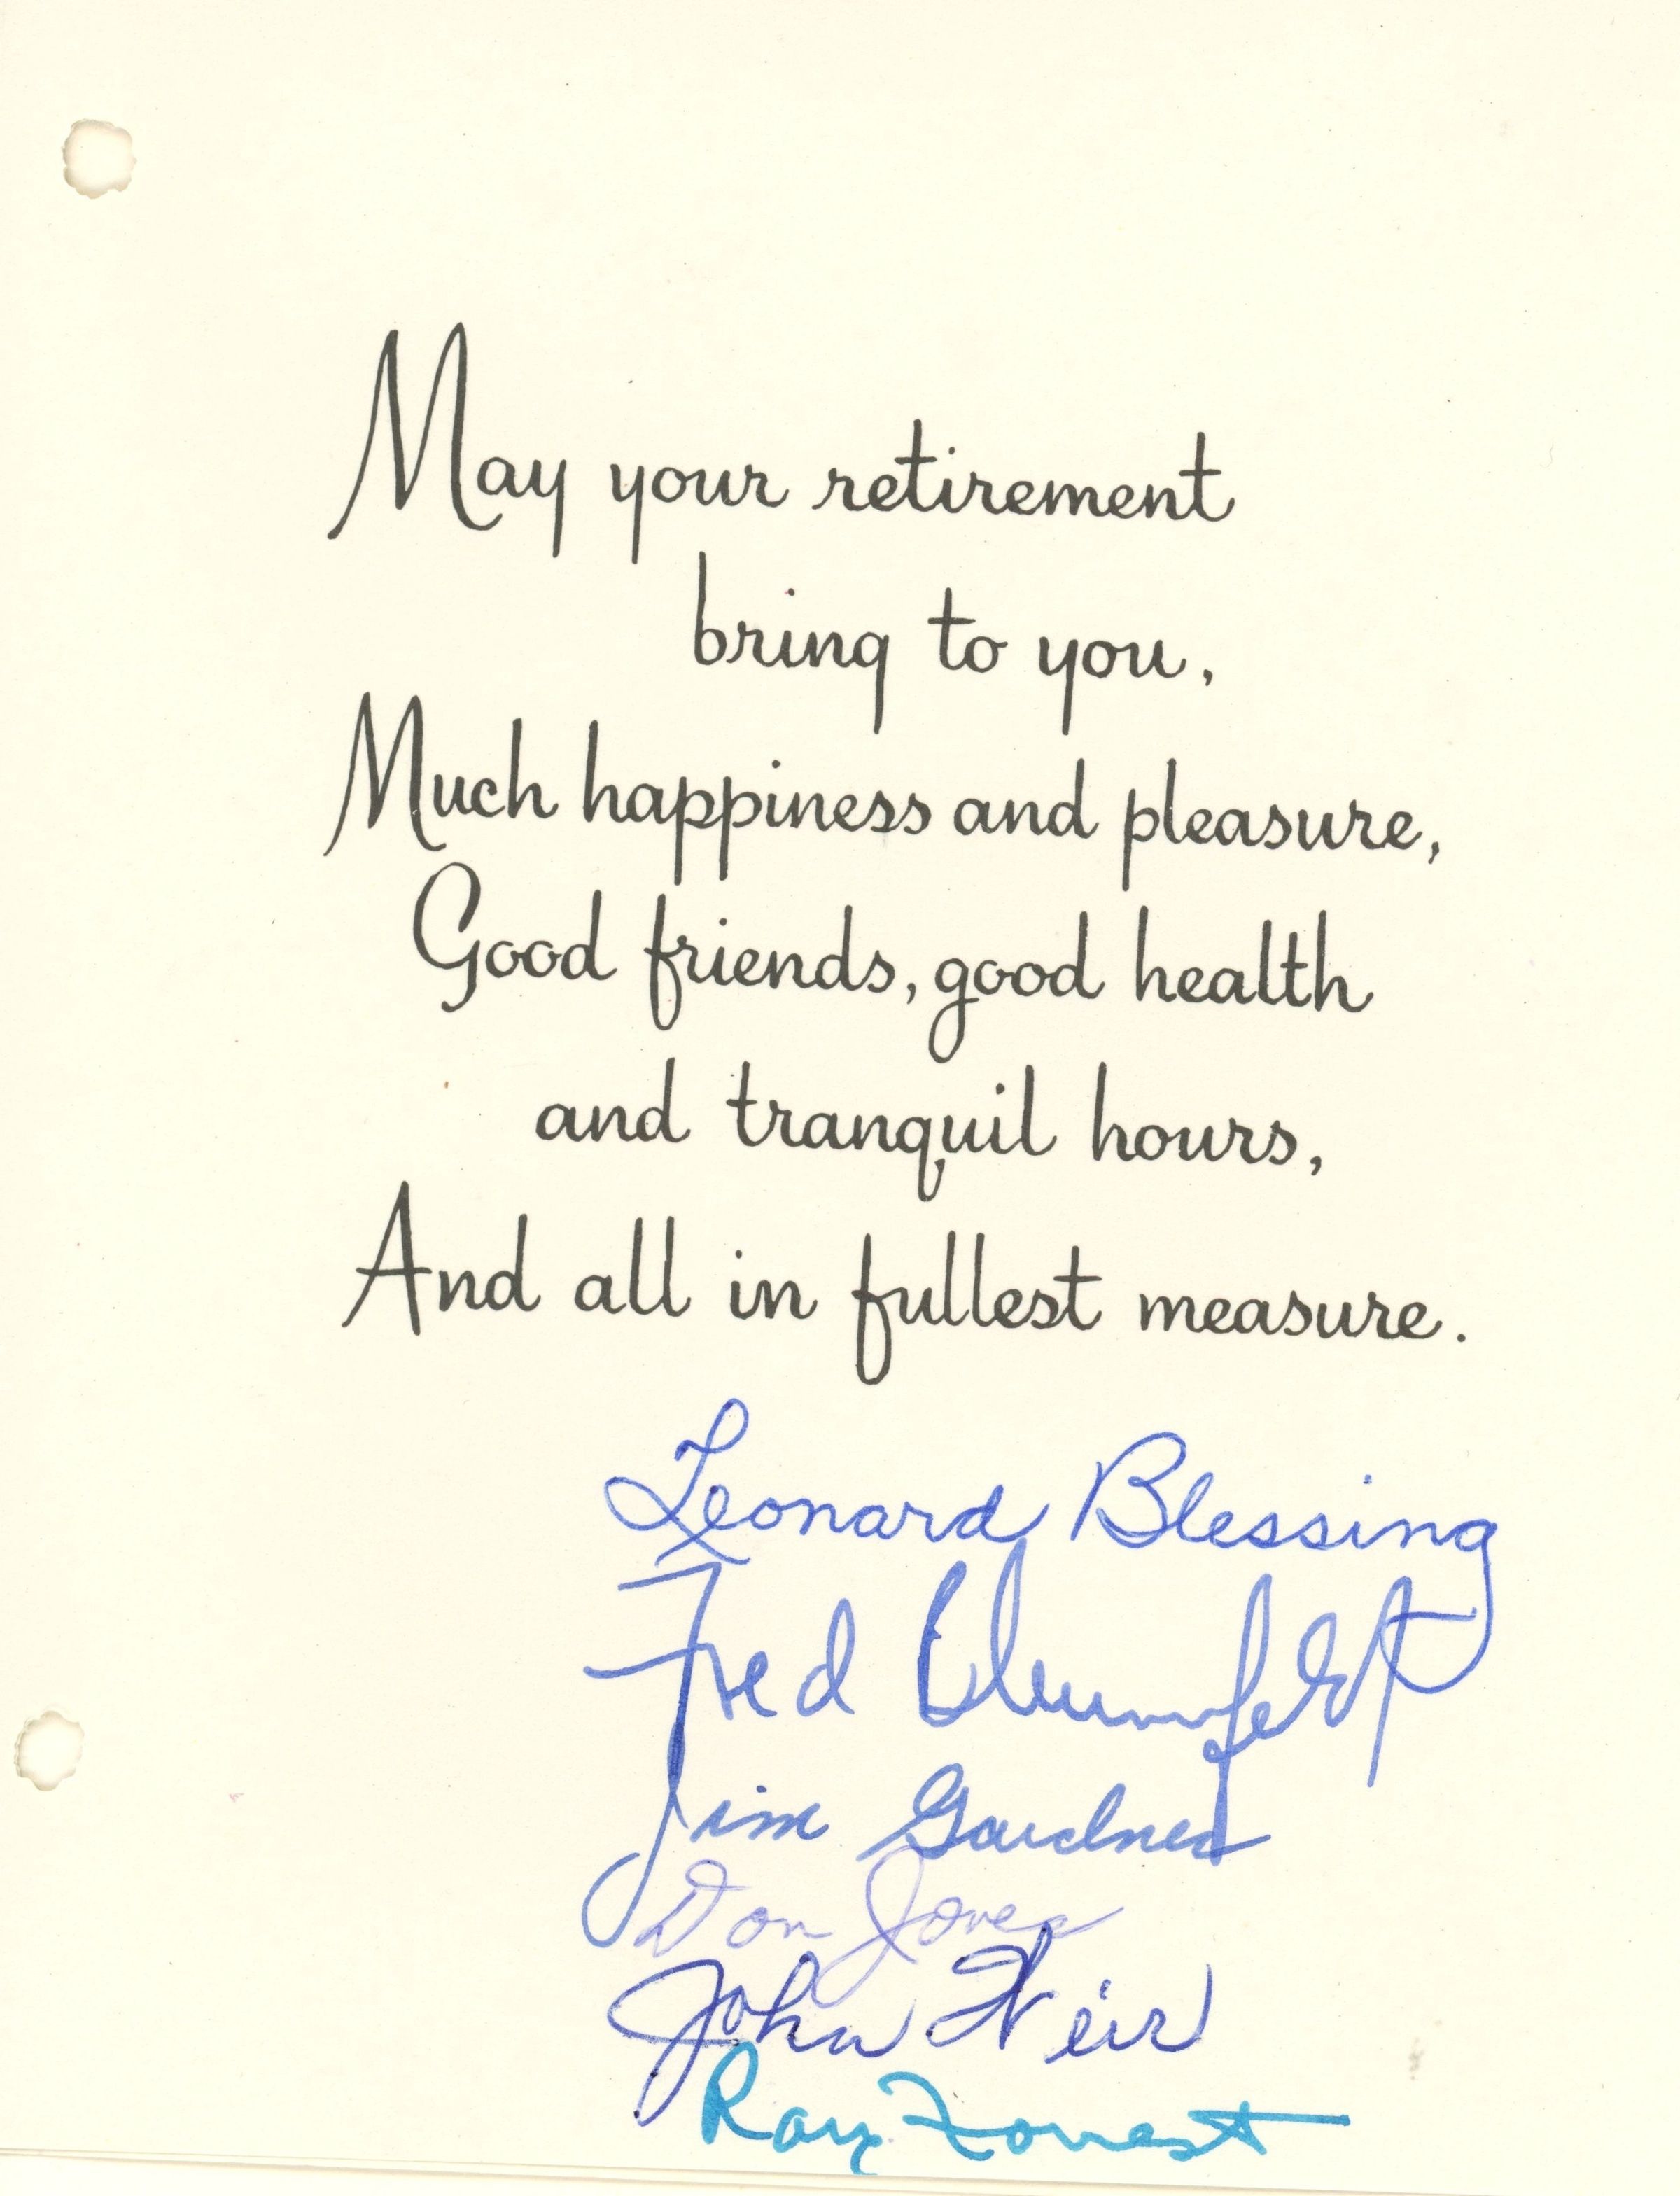 May your retirement
bring to you,
Much happiness and pleasure,
Good friends, good health
and tranquil hours,
And all in fullest measure.
Leonard Blessing
Fred
Jim Gardner
Don Jones
John Weir
Ray Forrest